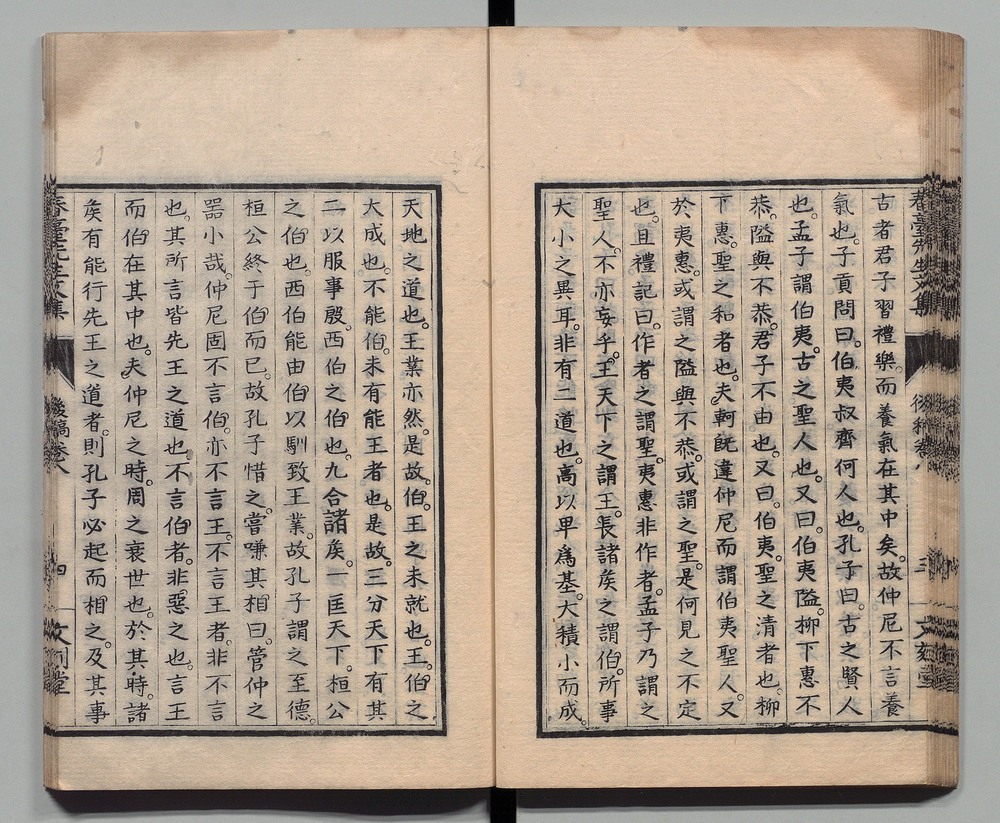 春臺先生文集
後稿卷八
三
古者君子習禮樂。而養氣在其中矣。故仲尼不言養
氣也。子貢問曰。伯夷叔齊何人也。孔子曰。古之賢人
也。孟子謂伯夷。古之聖人也。又曰。伯夷隘。柳下惠不
恭。隘與不恭。君子不由也。又曰。伯夷。聖之清者也。柳
下惠。聖之和者也。夫軻旣違仲尼而謂伯夷聖人。又
於夷惠。或謂之隘與不恭。或謂之聖。是何見之不定
也。且禮記曰。作者之謂聖。夷惠非作者。孟子乃謂之
聖人。不亦妄乎。王天下之謂王。長諸矦之謂伯。所事
大小之異耳。非有二道也。高以卑爲基。大積小而成。
天地之道也。王業亦然。是故。伯。王之未就也。王。伯之
大成也。不能伯。未有能王者也。是故。三分天下有其
二以服事殷。西伯之伯也。九合諸矦。一匡天下。桓公
之伯也。西伯能由伯以馴致王業。故孔子謂之至德。
桓公終于伯而已。故孔子惜之。嘗嗛其相曰。管仲之
器小哉。仲尼固不言伯。亦不言王。不言王者。非不言
也。其所言皆先王之道也。不言伯者。非惡之也。言王
而伯在其中也。夫仲尼之時。周之衰世也。於其時。諸
矦有能行先王之道者。則孔子必起而相之。及其事
春臺先生文集
後稿卷八
四